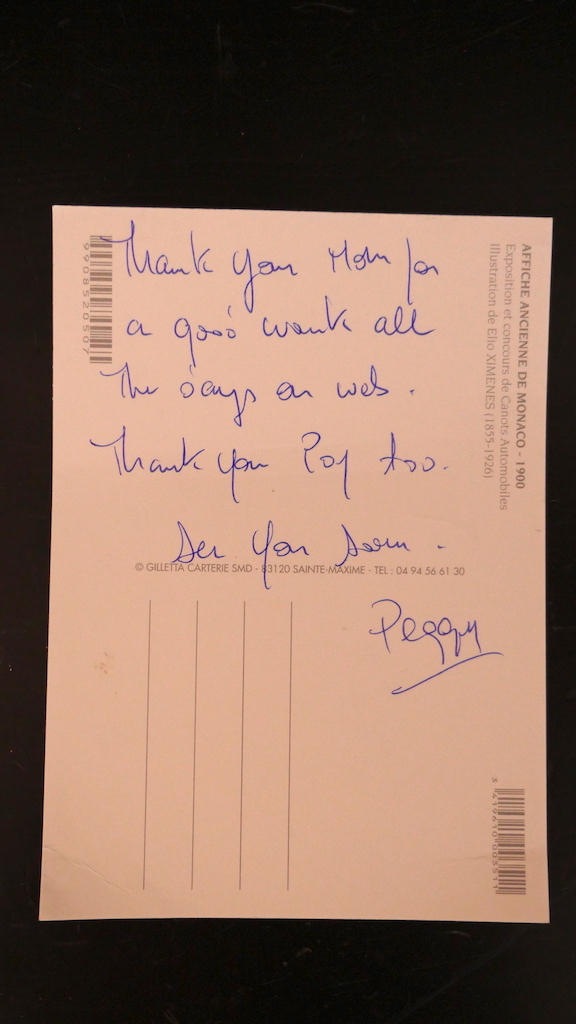 Thank you Mom for
a good wank all
The days on web.
Thank you Roy too.
See you soon.
Peggy
AFFICHE ANCIENNE DE MONACO - 1900
Exposition et concours de Canots Automobiles
Illustration de Elio XIMENES (1855-1926)
© GILLETTA CARTERIE SMD - 83120 SAINTE-MAXIME - TEL : 04 94 56 61 30
9908520507
3 419610 003511